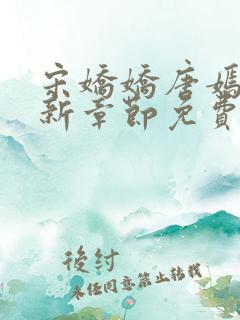 宋嬌嬌唐嫣
新章節免費
後紂
未經同意禁止轉載